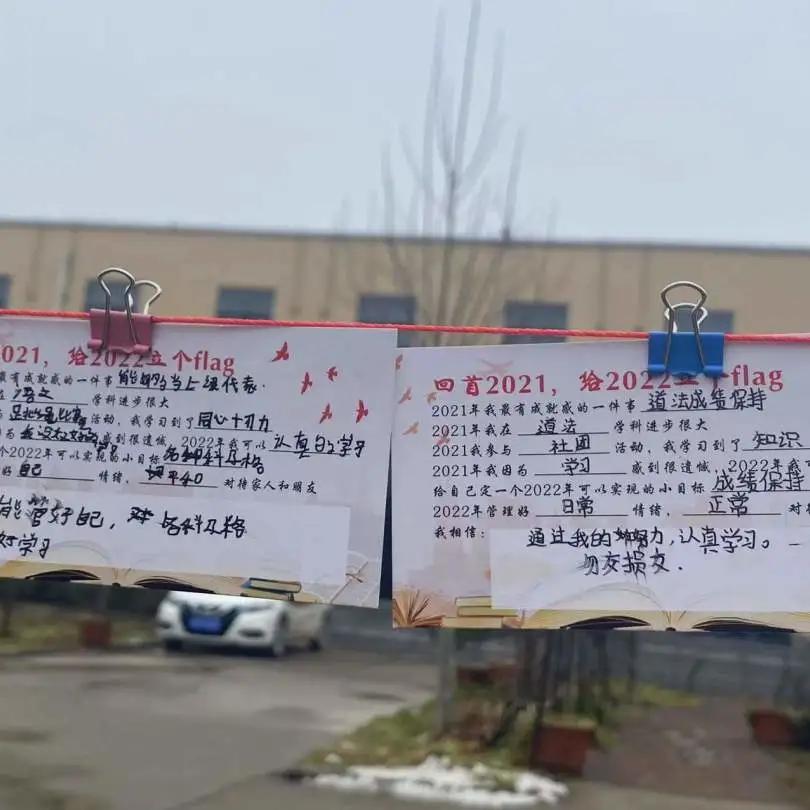 2021，给2022立个flag
最有成就感的一件事 能够当上课代表.
在 语文 学科进步很大
与 足球比赛 活动，我学习到了 同心十刀力
感到很遗憾，2022年我可以 认真的学习
个2022年可以实现的小目标 各种科及格
好 自己 情绪， 平40 对待家人和朋友
能管好自己，对 各科及格
好学习
回首2021，给2022立个flag
2021年我最有成就感的一件事 道法成绩保持
2021年我在 道法 学科进步很大
2021我参与 社团 活动，我学习到了 知识
2021年我因为 学习 感到很遗憾，2022年我可
给自己定一个2022年可以实现的小目标 成绩保持
2022年管理好 日常 情绪， 正常 对待
我相信：
通过我的努力，认真学习。
勿交损友.